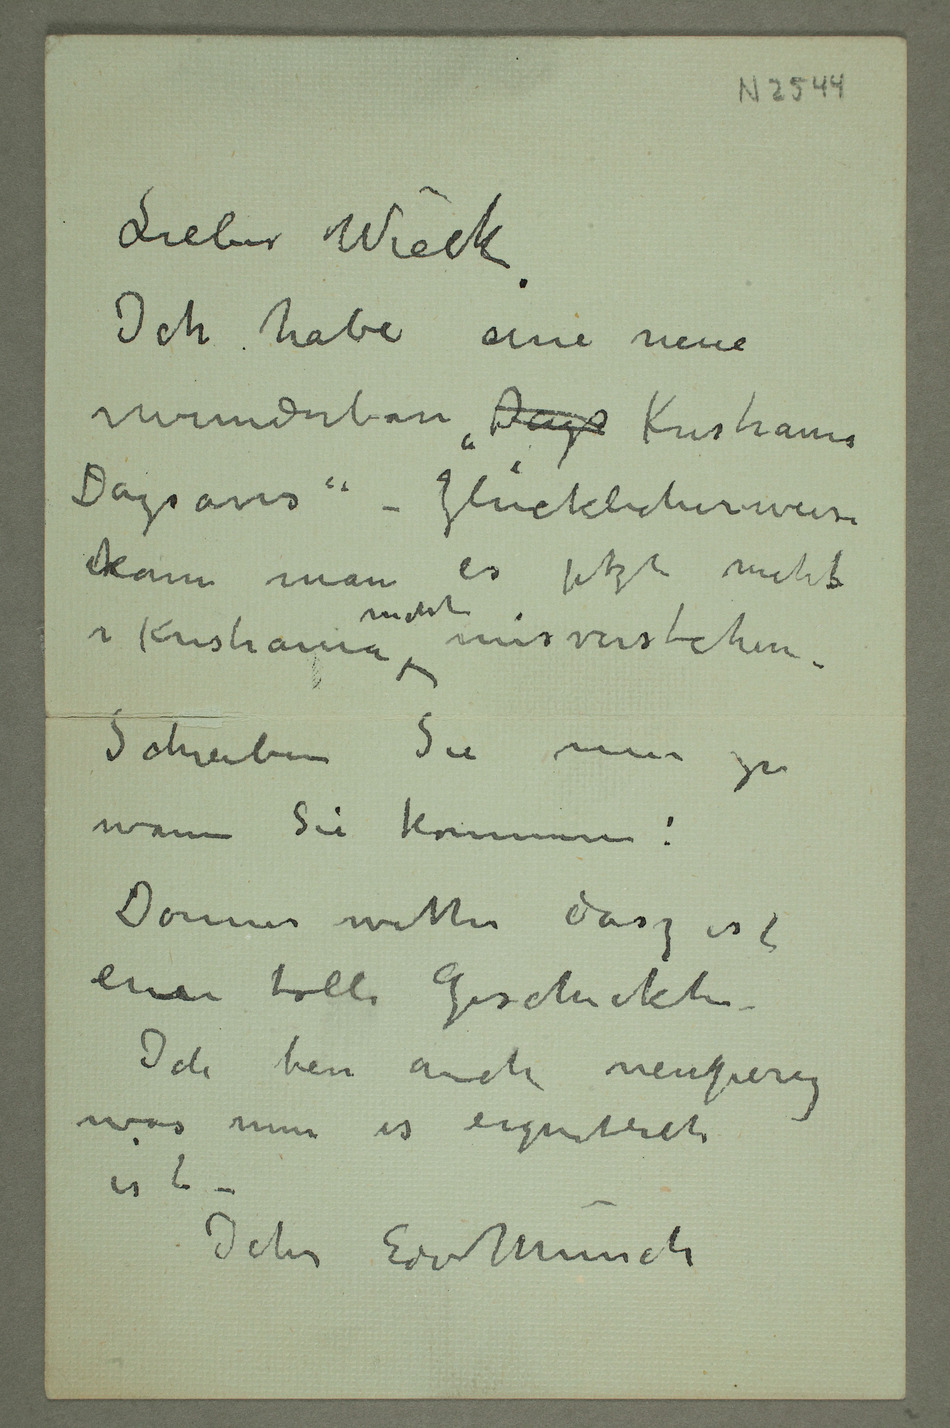 N 2544
Lieber Wieck.
Ich habe eine neue
wunderbare „Dags Kristiania
Dagsavis“ – Glücklicherweise
kann man es jetzt nicht
i Kristiania nicht misverstehen –
Schreiben Sie nun
wann Sie kommen!
Donner wetter dasz ist
eine tolle Geschickte –
Ich bin auch neugierig
was nun es eigentlich
ist –
Ichr Edv Munch